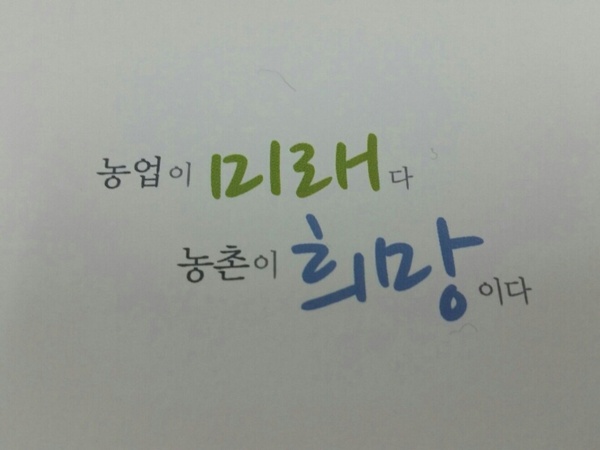 농업이 미래다
농촌이 희망이다